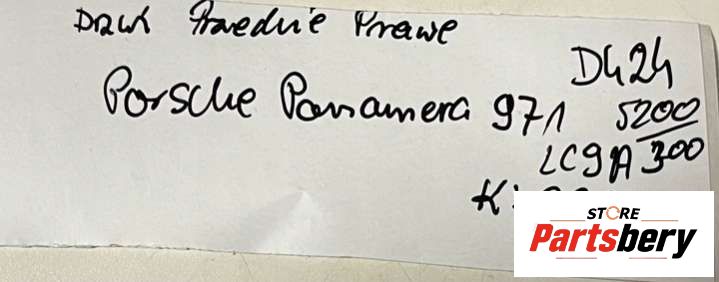 Drzwi Przednie Prawe
D424
Porsche Panamera 971 5200
LC9A 300
K
STORE
Partsbery